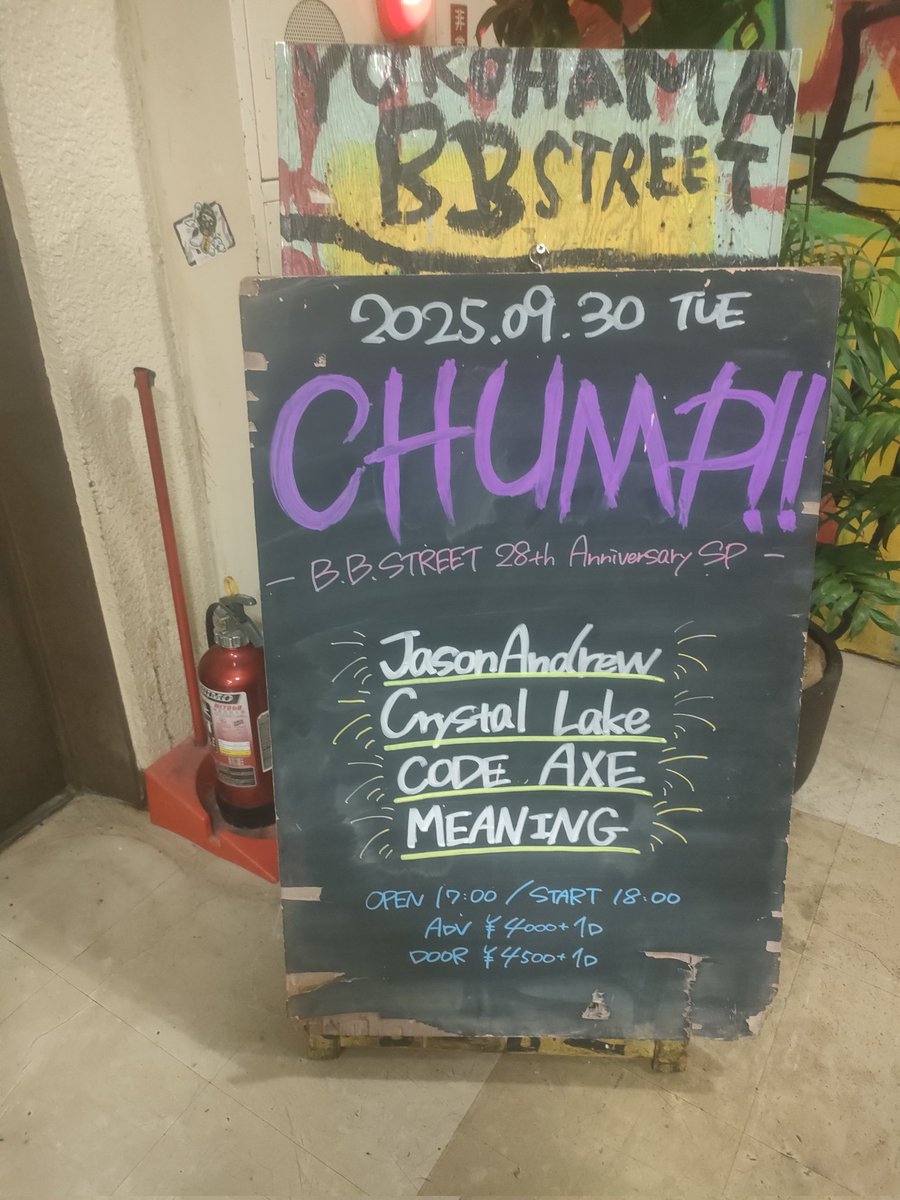 非常
YOKOHAMA
BB STREET
2025.09.30 TUE
CHUMP!!
— B.B.STREET 28th Anniversary SP —
JasonAndrew
Crystal Lake
CODE AXE
MEANING
OPEN 17:00 / START 18:00
ADV ¥4000+1D
DOOR ¥4500+1D